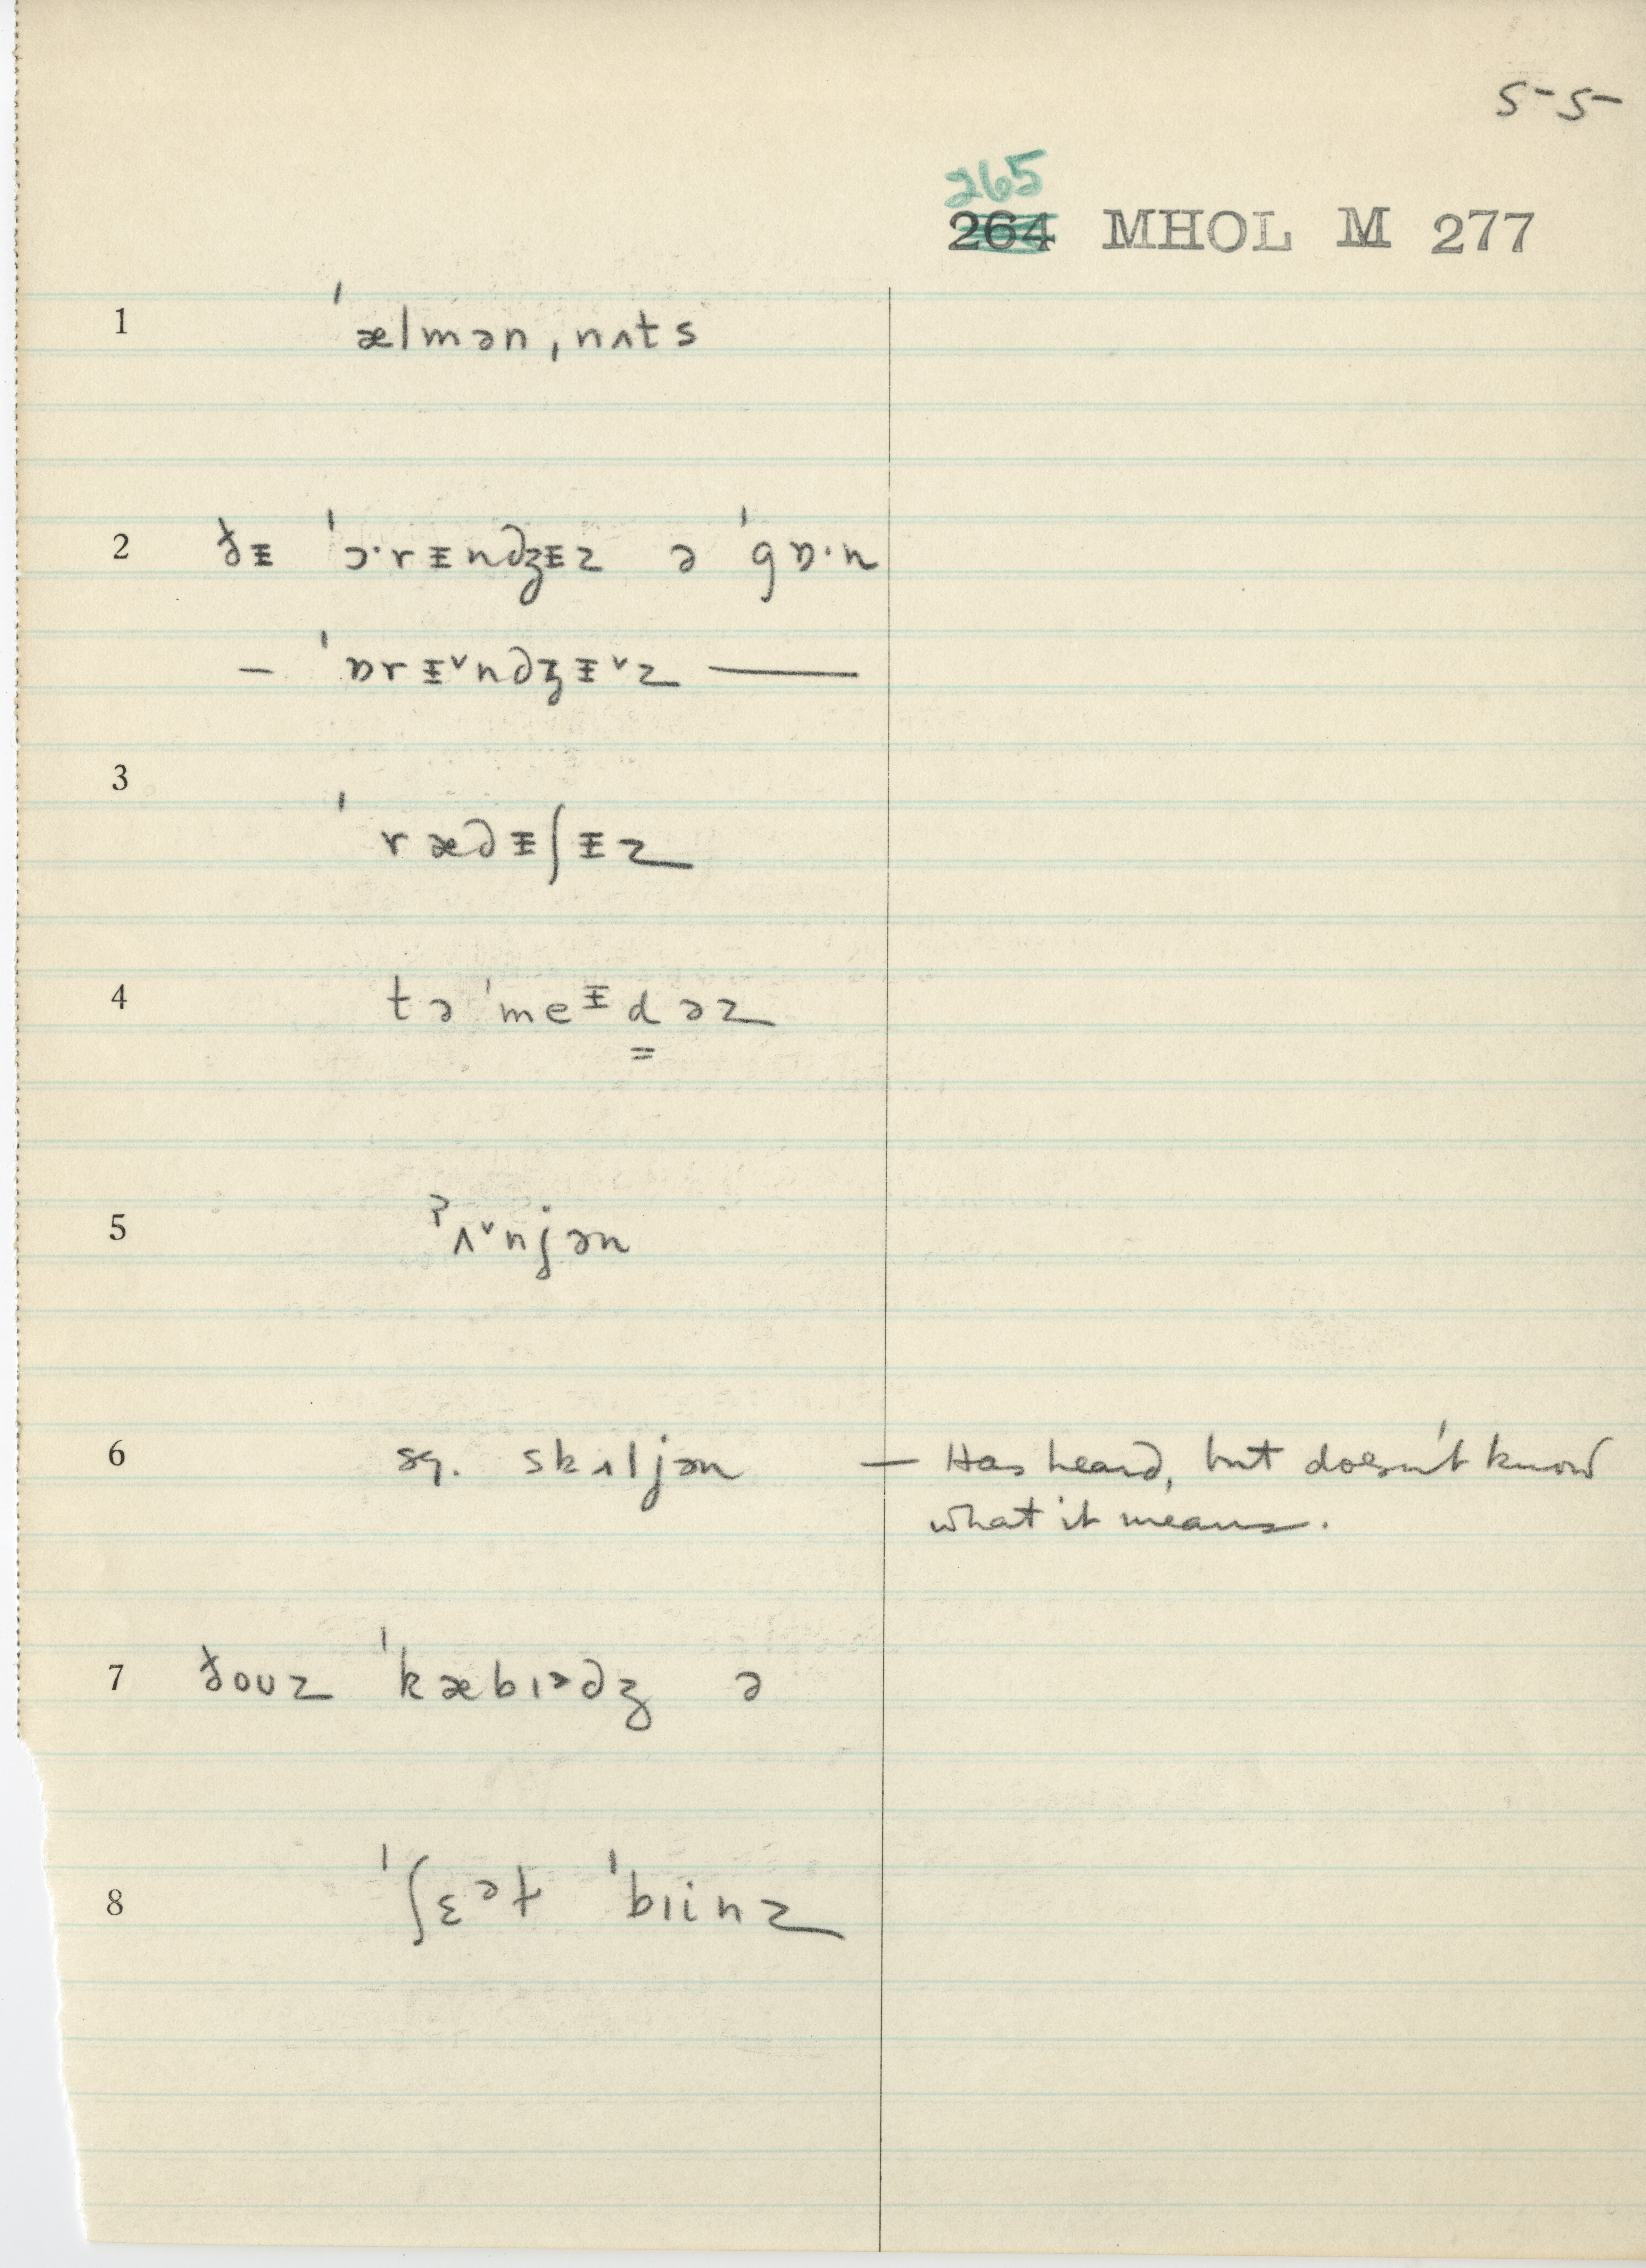 55
265
264 MHOL M 277
1 ˈælmənˌnʌts
2 ðᵻ ˈɔ·rᵻndʒᵻz ə ˈgɒ·n
— ˈɒrᵻ˅ndʒᵻ˅z ——
3 ˈrædᵻʃᵻz
4 təˈmeᵻd̳əz
5 ˀʌ˅njən
6 sq. skʌljən — Has heard, but doesn't know
what it means.
7 ðouz ˈkæbɪᵊdʒ ə
8 ˈʃɛᵊt ˈbɪinz